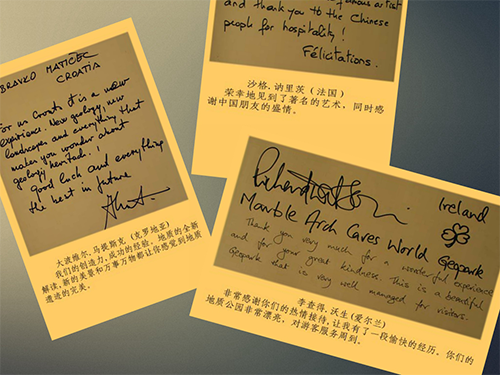 BRAVKO MATIČEC
CROATIA
For us Croats it is a new
experience. New geology, new
landscapes and everything that
makes you wonder about
geology heritech!
Good luck and everything
the best in future
大波维尔.马提斯克（克罗地亚）
我们的创造力,成功的经验,地质的全新
解读,新的美景和万事万物都让你感觉到地质
遗迹的完美.
famous artist
and thank you to the Chinese
people for hospitality!
Félicitations.
沙格.讷里茨（法国）
荣幸地见到了著名的艺术，同时感
谢中国朋友的盛情。
Ireland
Marble Arch Caves World Geopark
Thank you very much for a wonderful experience
and for your great kindness. This is a beautiful
Geopark that is very well managed for visitors.
李查得.沃生(爱尔兰)
非常感谢你们的热情接待,让我有了一段愉快的经历。你们的
地质公园非常漂亮，对游客服务周到。